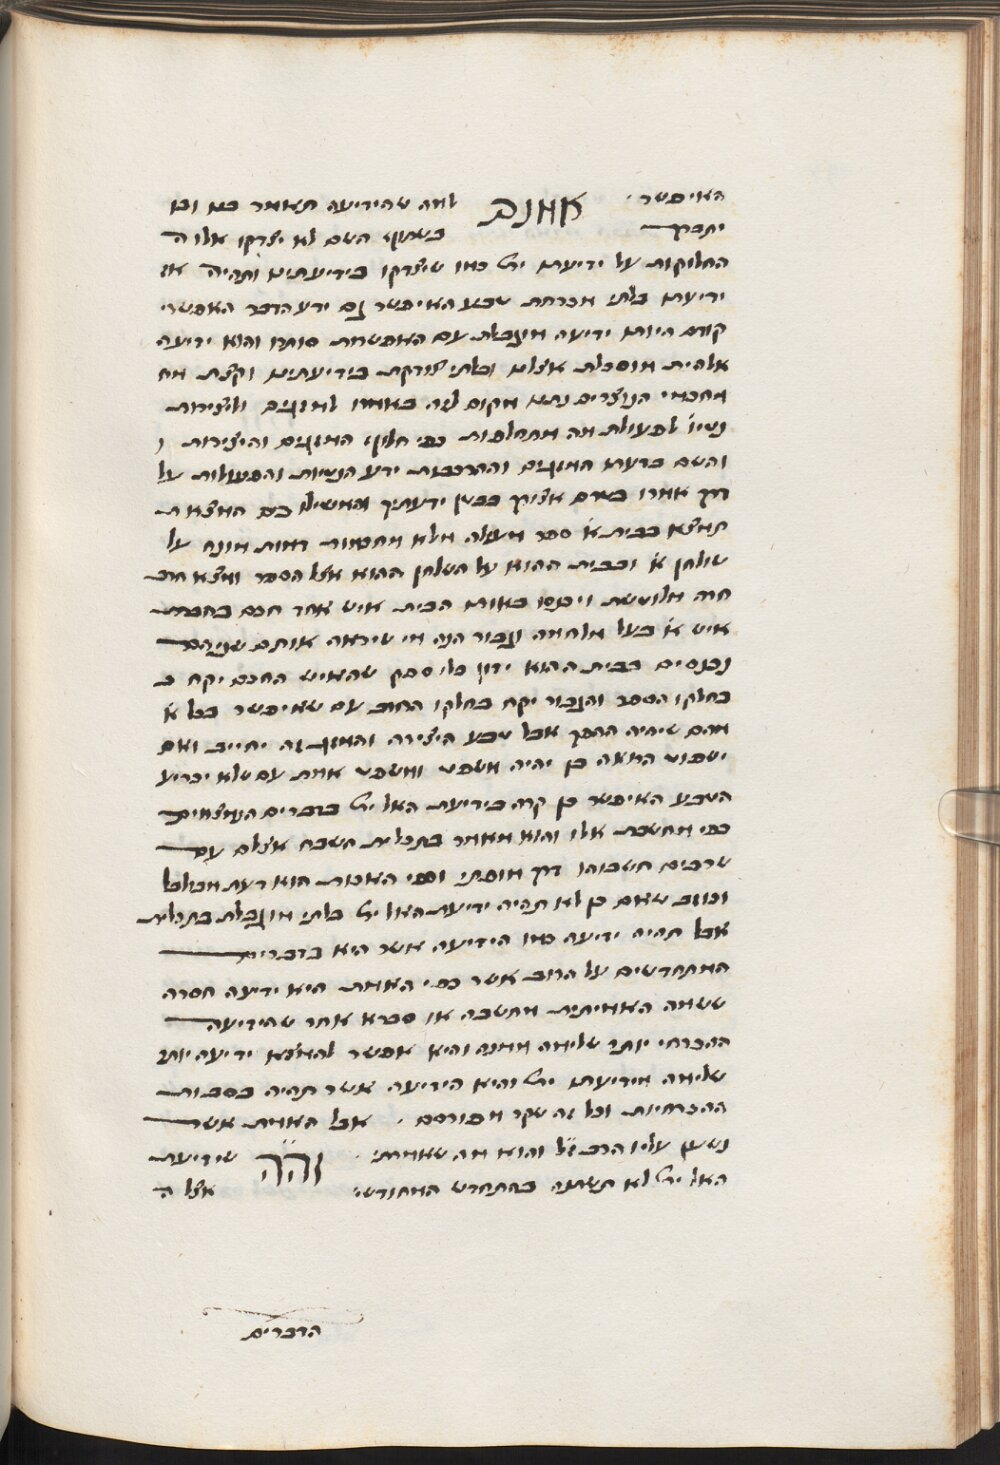 האיפשר · אמנם למה שהידיעה תאמר בנו ובו
יתברך בשתוף השם לא יצדקו אלו ה
החלוקות על ידיעתו ית' כמו שיצדקו בידיעתינו ותהיה אז
ידיעתו בלתי מכרחת טבע האיפשר גם ידע הדבר האפשרי
קודם היותו ידיעה מוגבלת עם האפשרות סותרו והוא ידיעה
אלהית מוסכלת אצלם ובלתי צודקת בידיעתינו וקצת מח
מחכמי הנוצרים נתנו מקום לזה באמרו למזגים וליצירות
נטיו' לפעולת מה מתחלפות כפי חלוף המזגים והיצירות ו
והשם בדעתו המזגים וההרכבות ידע הנטיות והפעולות על
דרך אמרו בטרם אצרך בבטן ידעתיך והמשילו בם המצא ת
תמצא בבית א' ספר מעולה מלא מחכמות רמות מונח על
שולחן א' ובבית ההוא על השלחן ההוא אצל הספר נמצא חרב
חדה מלוטשת ויכנסו באותו הבית איש אחד חכם בחברת
איש א' בעל מלחמה וגבור הנה מי שיראה אותם שניהם
נכנסים בבית ההוא ידון בלי ספק שהאיש החכם יקח ב
בחלקו הספר והגבור יקח בחלקו החרב עם שאיפשר בכל א'
מהם שיהיה ההפך אבל טבע היצירה והמזג זה יחייב ואם
ישפוט הרואה כן יהיה משפטו ומשפט אמת עם שלא יכריע
הטבע האיפשר כן קרה בידיעת האל ית' בדברים הנמצאים
כפי מחשבת אלו והוא מאמר בתכלית השבח אצלם עם
שרבים חשבוהו דרך מופתי וכפי האמת הוא דעת מבולבל
וכוזב שאם כן לא תהיה ידיעת האל ית' בלתי מוגבלת בתכלית
אבל תהיה ידיעה כמו הידיעה אשר היא בדברים
המתחדשים על הרוב אשר כפי האמת היא ידיעה חסרה
ששמה האמיתית מחשבה או סברא אחר שהידיעה
ההכרחי' יותר שלימה ממנה והיא אפשר להמצא ידיעה יותר
שלימה מידיעתו ית' והיא הידיעה אשר תהיה בסבות
ההכרחיות וכל זה שקר מפורסם · אבל האמת אשר
נשען עליו הרב ז"ל והוא מה שאמרתי · וה"ה שידיעת
האל ית' לא תשתנה בהתחדש המחודשי' אצל ה
הדברים